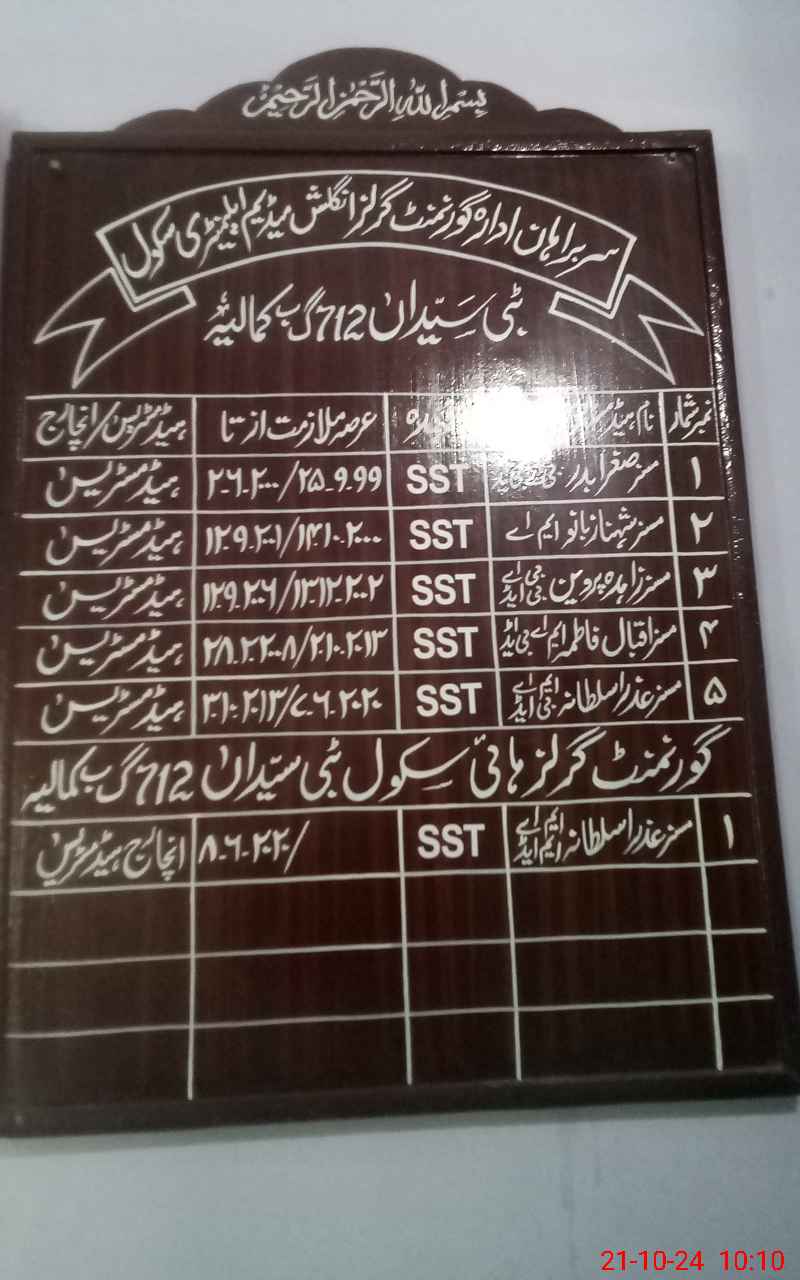 بسم اللہ الرحمٰن الرحیم
سربراہان ادارہ گورنمنٹ گرلز انگلش میڈیم ایلیمنٹری سکول
ٹبی سیّداں 712 گ ب کمالیہ
نمبر شمار نام ہیڈ عرصہ ملازمت از تا ہیڈ مسٹریس/انچارج
۱ مسز صغرٰ بدر SST ۲۵_۹_۹۹/۲_۶_۲۰۰۰ ہیڈ مسٹریس
۲ مسز شہناز بانو ایم اے SST ۱۴_۱۰_۲۰۰۰/۱۲_۹_۲۰۰۱ ہیڈ مسٹریس
۳ مسز زاہدہ پروین بی اے بی ایڈ SST ۱۳_۱۲_۲۰۰۲/۱۲_۹_۲۰۰۶ ہیڈ مسٹریس
۴ مسز اقبال فاطمہ ایم اے بی ایڈ SST ۲_۱۰_۲۰۱۳/۲۸_۲_۲۰۰۸ ہیڈ مسٹریس
۵ مسز عذرا سلطانہ ایم اے بی ایڈ SST ۷_۶_۲۰۲۰/۳_۱۰_۲۰۱۳ ہیڈ مسٹریس
گورنمنٹ گرلز ہائی سکول ٹبی سیّداں 712 گ ب کمالیہ
۱ مسز عذرا سلطانہ ایم اے ایم ایڈ SST ۸_۶_۲۰۲۰/ انچارج ہیڈ مسٹریس
21-10-24 10:10